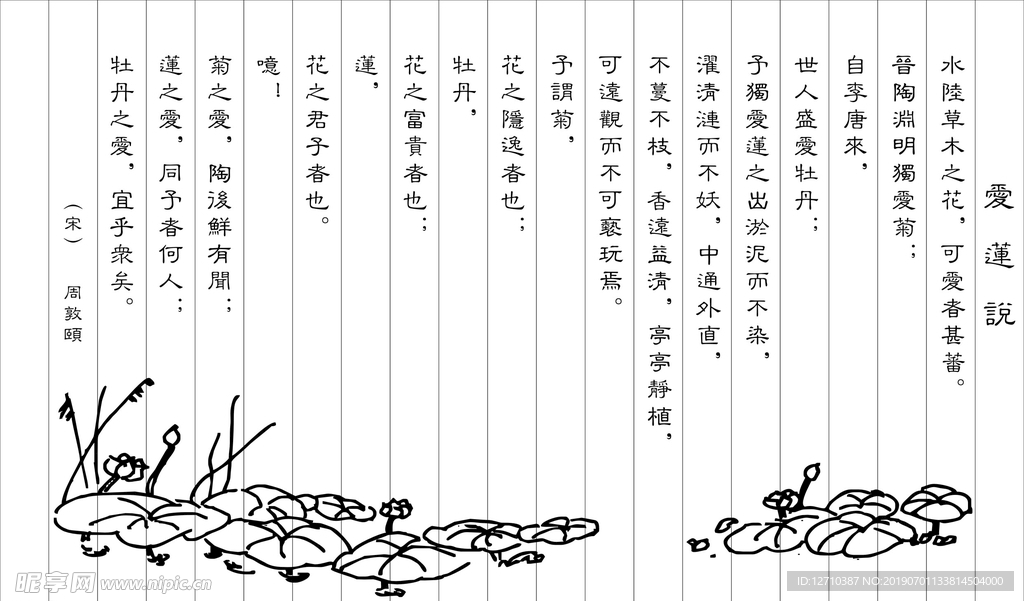 愛蓮說
水陸草木之花，可愛者甚蕃。
晉陶淵明獨愛菊；
自李唐來，
世人盛愛牡丹；
予獨愛蓮之出淤泥而不染，
濯清漣而不妖，中通外直，
不蔓不枝，香遠益清，亭亭靜植，
可遠觀而不可褻玩焉。
予謂菊，
花之隱逸者也；
牡丹，
花之富貴者也；
蓮，
花之君子者也。
噫！
菊之愛，陶後鮮有聞；
蓮之愛，同予者何人；
牡丹之愛，宜乎衆矣。
（宋） 周敦頤
昵享网 www.nipic.cn
ID:12710387 NO:20190701133814504000